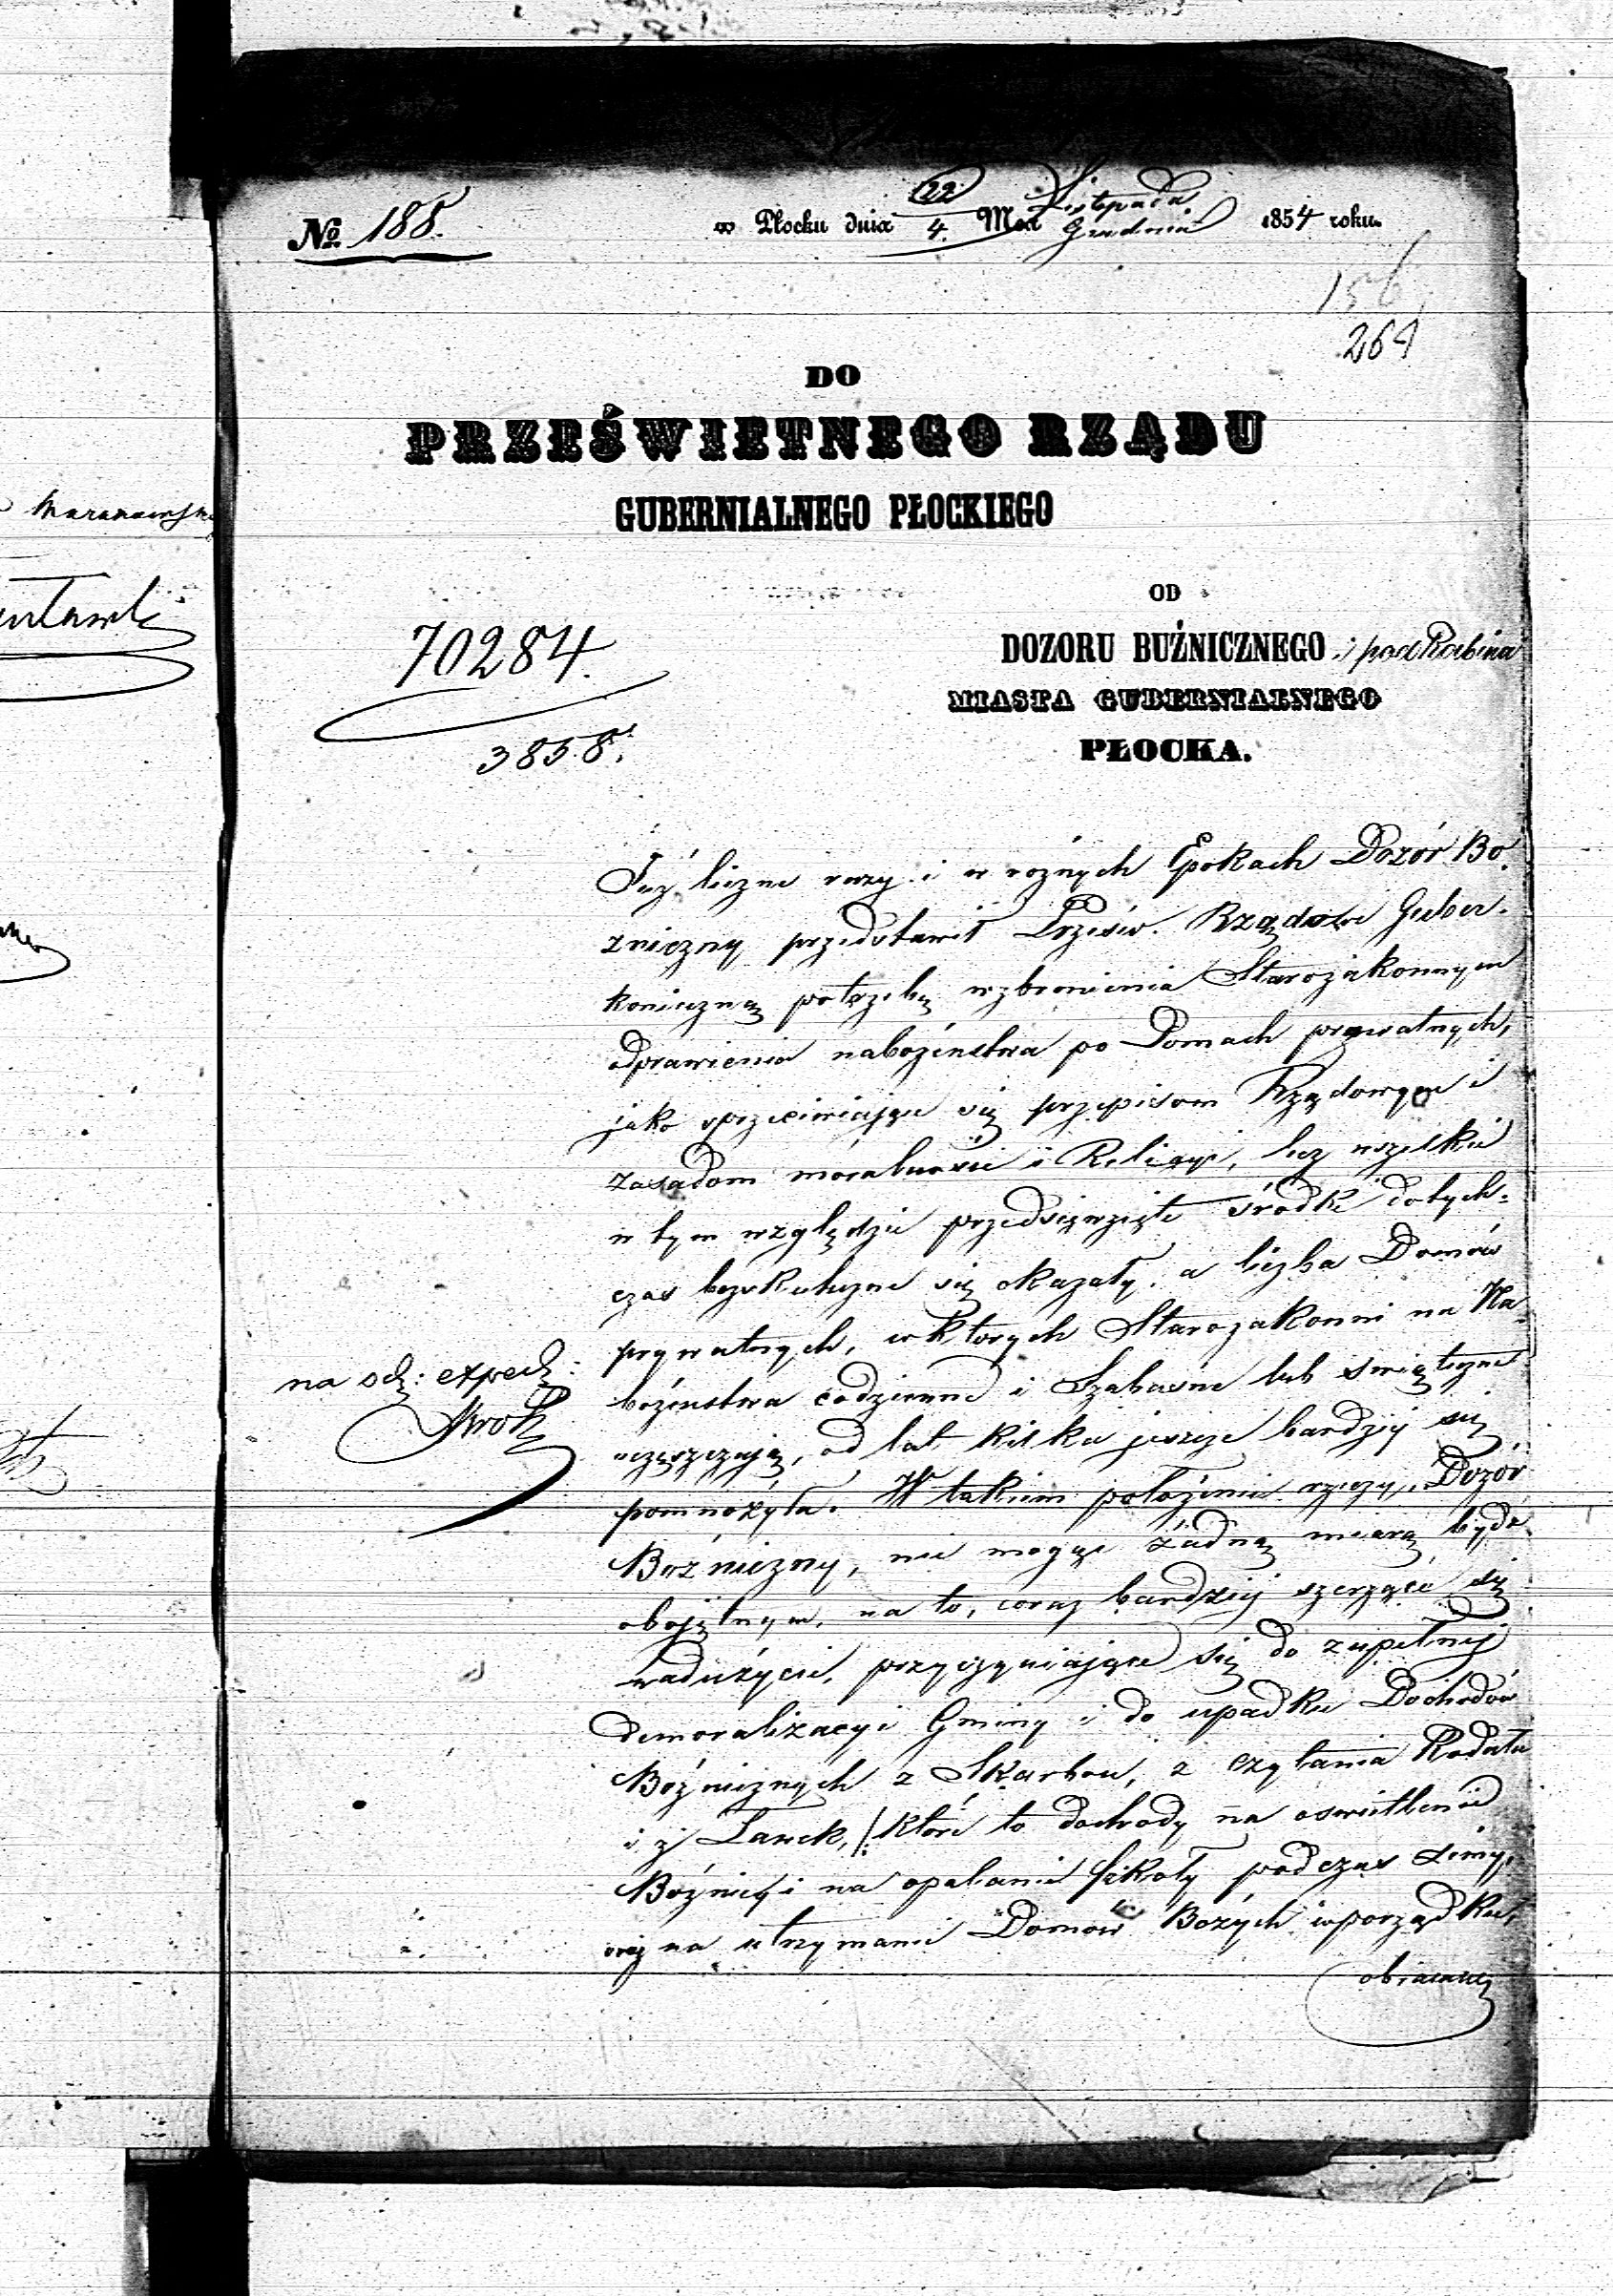 № 188.
w Płocku dnia 22/4. Mca Listopada/Grudnia 1854 roku.
156
264
DO
PRZEŚWIETNEGO RZĄDU
GUBERNIALNEGO PŁOCKIEGO
OD
DOZORU BUŹNICZNEGO i podRabina
MIASTA GUBERNIALNEGO
PŁOCKA.
70284.
3858.
Już liczne razy i w rożnych Epokach Dozór Bo-
zniczny przedstawił Prześw. Rządowi Guber.
konieczną potrzebę wzbronienia Starozakonnym
odprawienia nabożeństwa po Domach prywatnych,
jako sprzeciwiające się przepisom Rządowym i
zasadom móralności i Religyi, lecz wszelkie
w tym względzie przedsięwzięte środki dotych=
czas bezskuteczne się okazały. a liczba Domów
prywatnych, w ktorych Starozakonni na Na-
bożeństwa codzienne i Szabasne lub swiąteczne
uczęszczają, od lat kilku jeszcze bardziej się
pomnożyła. W takiem położeniu rzeczy, Dozór
Bożniczny, nie mogąc żadną miarą bydź
obojętnym, na to, coraz bardziej szerzące się
nadużycie, przyczyniające się do zupełnej
demoralizacyi Gminy i do upadku Dochodów
Bożnicznych z Skarbon, z czytania Rodału
i z Ławek, /: które to dochody na oswietlenie
Bożnicy i na opalanie szkoły podczas zimy,
oraz na utrzymanie Domów Bożych w porządku,
obracane
na od: exped: